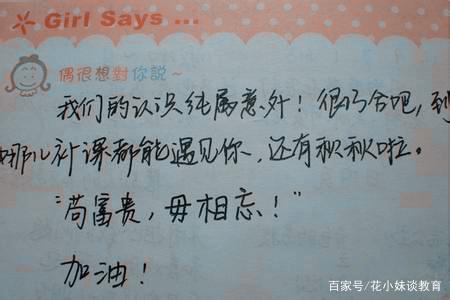 Girl Says ...
偶很想對你説~
我们的认识纯属意外！很巧合吧，到
哪儿补课都能遇见你，还有秋秋啦。
“苟富贵，毋相忘！”
加油！
百家号/花小妹谈教育